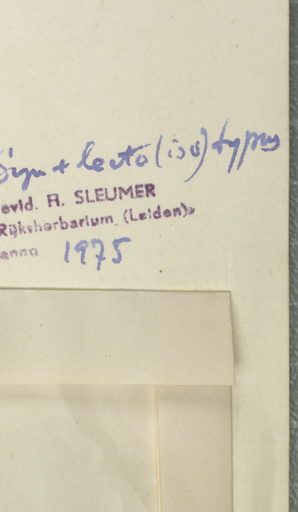 Syn + lecto (iso) typus
evid. H. SLEUMER
Rijksherbarium (Leiden)
anno 1975